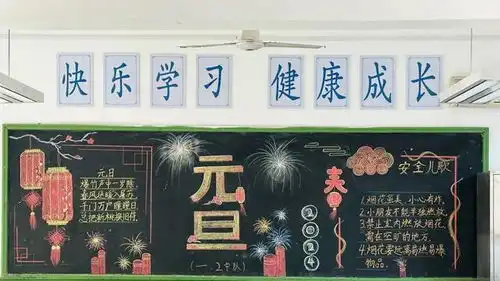 快乐学习 健康成长
元日
爆竹声中一岁除
春风送暖入屠苏
千门万户曈曈日
总把新桃换旧符
元旦
(一.2中队)
2024
安全儿歌
1.烟花亚美,小心有炸.
2.小朋友不能单独燃放.
3.禁止室内燃放烟花,
需在空旷的地方.
4.烟花要远离易燃易爆
物品.